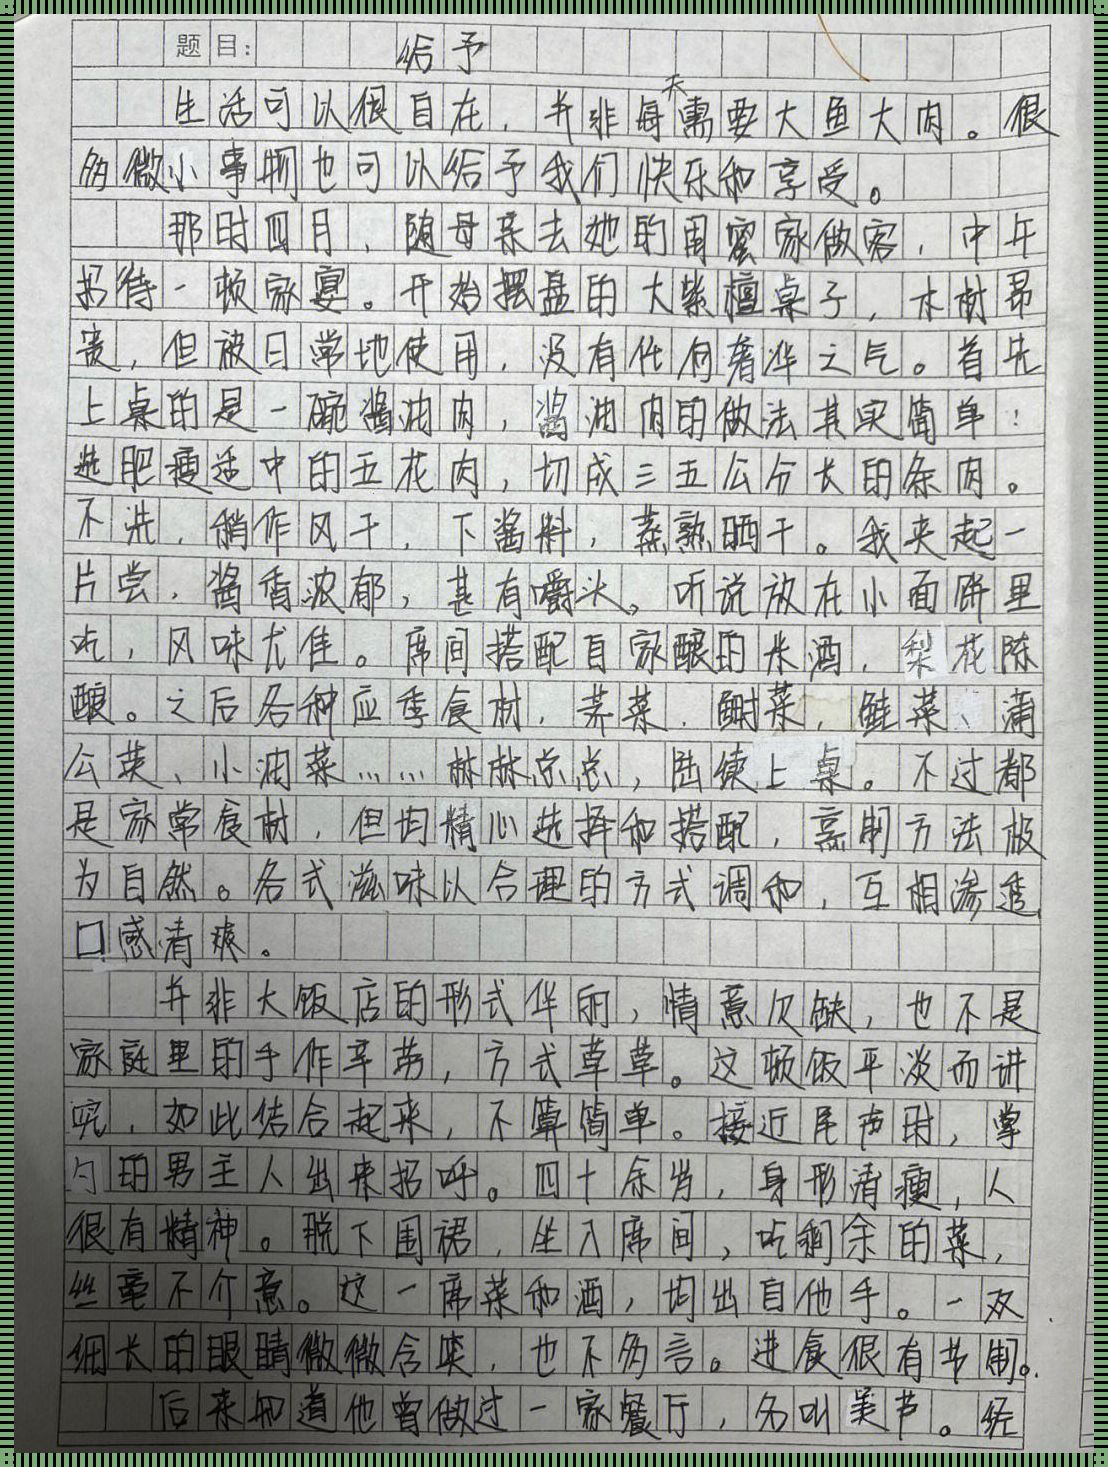 题目: 给予
生活可以很自在，并非每天需要大鱼大肉。很
多微小事物也可以给予我们快乐和享受。
那时四月，随母亲去她的闺蜜家做客，中午
招待一顿家宴。开始摆盘的大紫檀桌子，木材昂
贵，但被日常地使用，没有任何奢华之气。首先
上桌的是一碗酱油肉，酱油肉的做法其实简单：
选肥瘦适中的五花肉，切成三五公分长的条肉。
不洗，稍作风干，下酱料，蒸熟晒干。我夹起一
片尝，酱香浓郁，甚有嚼头。听说放在小面饼里
吃，风味尤佳。席间搭配自家酿的米酒，梨花陈
酿。之后各种应季食材，荠菜、菜，鲑菜、蒲
公英、小油菜……林林总总，陆续上桌。不过都
是家常食材，但均精心选择和搭配，烹制方法极
为自然。各式滋味以合理的方式调和，互相渗透，
口感清爽。
并非大饭店的形式伴奏，情意欠缺，也不是
家庭里的手作辛劳，方式草草。这顿饭平淡而讲
究，如此结合起来，不算简单。接近尾声时，掌
勺的男主人出来招呼。四十余岁，身形清瘦，人
很有精神。脱下围裙，坐入席间，吃剩余的菜，
丝毫不介意。这一席菜和酒，均出自他手。一双
细长的眼睛微微含笑，也不多言。进食很有节制。
后来知道他曾做过一家餐厅，名叫美芦。经